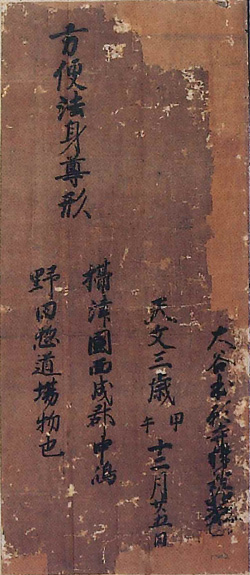 大谷本願寺釋證如
天文三歳甲午十二月廿五日
方便法身尊形
攝津國西成郡中嶋
野田惣道場物也